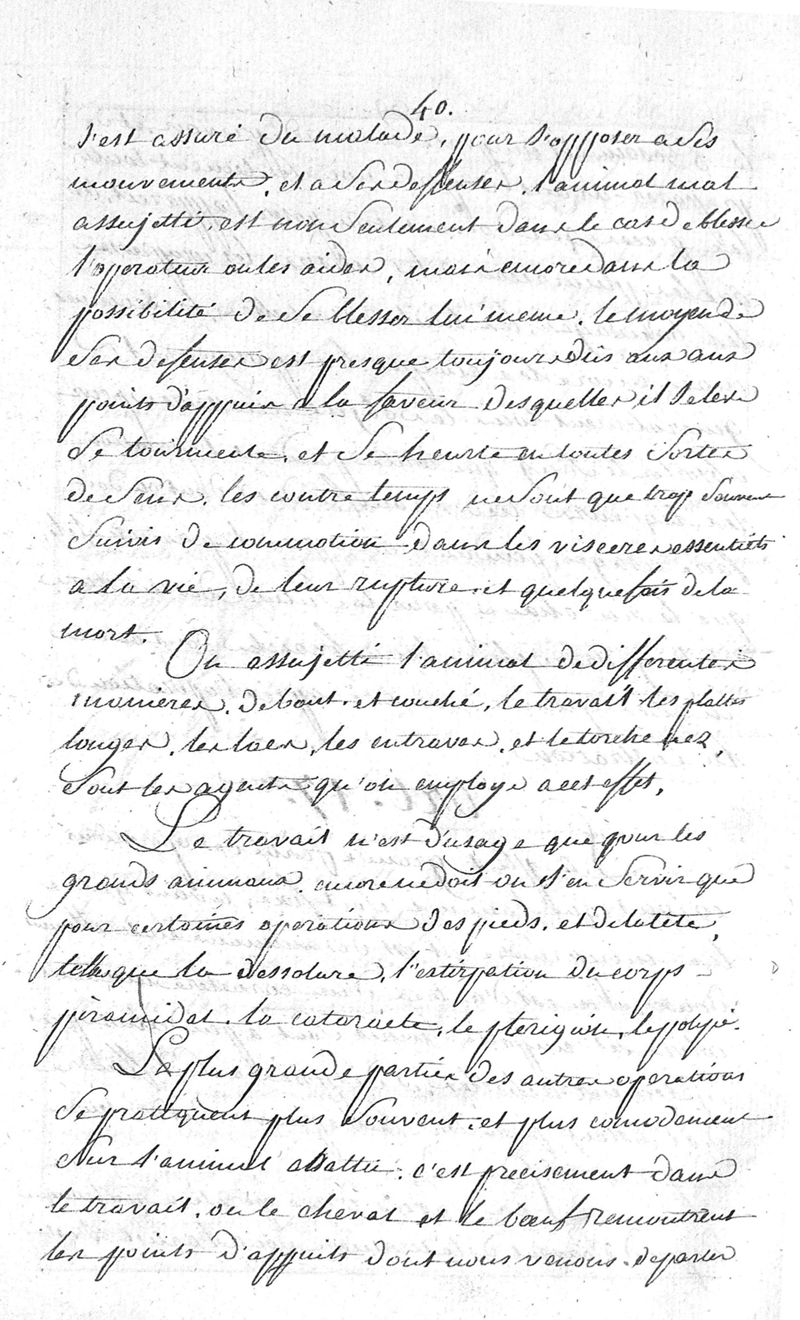 40.
s'est assuré du malade, pour s'opposer a des
mouvements, et a ses defenses. l'animal mal
assujetti, est non seulement dans le cas de blesser
l'operateur ou les aides, mais encore dans la
possibilité de se blesser lui meme. le moyen de
ses defenses est presque toujours dûs aux aux
points d'appuis a la faveur desquelles il
se tourmente, et se heurte en toutes sortes
de sens. les contre temps ne sont que trop souvent
suivis de commotion dans les visceres essentiels
a la vie, de leur rupture et quelquefois de la
mort.
On assujetti l'animal de differentes
manieres, debout et couché, le travail les plattes
longes, les lacs, les entraves, et le torche nez,
sont les agents qu'on employe a cet effet.
Le travail n'est d'usage que pour les
grands animaux. encore ne doit on s'en servir que
pour certaines operations des pieds, et de la tete,
telle que la dessolure, l'estirpation du corps
piramidal, la cataracte, le pterigion, le polype.
La plus grande partie des autres operations
se pratiquent plus souvent, et plus comodement
sur l'animal abattu. c'est precisement dans
le travail, ou le cheval et le bœuf remontrent
les points d'appuits dont nous venons de parler